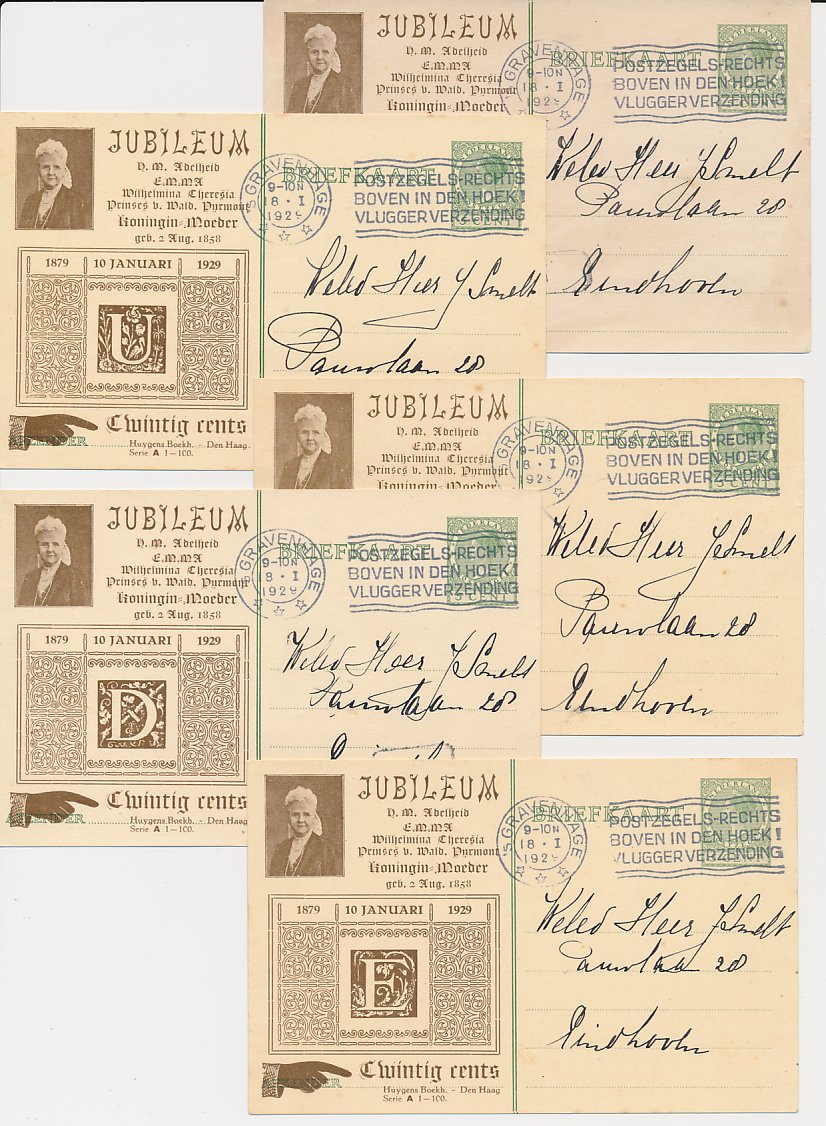 JUBILEUM
H. M. Adelheid
E.M.M.A
Wilhelmina Theresia
Prinses v. Wald. Pyrmont
Koningin-Moeder
'S GRAVENHAGE
9-10N
18 · I
1929
BRIEFKAART
NEDERLAND
POSTZEGELS-RECHTS
BOVEN IN DEN HOEK!
VLUGGER VERZENDING
Weled Heer J Smelt
Pauwlaan 28
Eindhoven
JUBILEUM
H. M. Adelheid
E.M.M.A
Wilhelmina Theresia
Prinses v. Wald. Pyrmont
Koningin-Moeder
geb. 2 Aug. 1858
1879 10 JANUARI 1929
U
Twintig cents
AFZENDER
Huygens Boekh. - Den Haag
Serie A 1-100.
'S GRAVENHAGE
9-10N
18 · I
1929
BRIEFKAART
NEDERLAND
5 CENT
POSTZEGELS-RECHTS
BOVEN IN DEN HOEK!
VLUGGER VERZENDING
Weled Heer J Smelt
Pauwlaan 28
JUBILEUM
H. M. Adelheid
E.M.M.A
Wilhelmina Theresia
Prinses v. Wald. Pyrmont
'S GRAVENHAGE
9-10N
18 · I
1929
BRIEFKAART
NEDERLAND
5 CENT
POSTZEGELS-RECHTS
BOVEN IN DEN HOEK!
VLUGGER VERZENDING
Weled Heer J Smelt
Pauwlaan 28
Eindhoven
JUBILEUM
H. M. Adelheid
E.M.M.A
Wilhelmina Theresia
Prinses v. Wald. Pyrmont
Koningin-Moeder
geb. 2 Aug. 1858
1879 10 JANUARI 1929
D
Twintig cents
AFZENDER
Huygens Boekh. - Den Haag
Serie A 1-100.
'S GRAVENHAGE
9-10N
18 · I
1929
BRIEFKAART
NEDERLAND
5 CENT
POSTZEGELS-RECHTS
BOVEN IN DEN HOEK!
VLUGGER VERZENDING
Weled Heer J Smelt
Pauwlaan 28
JUBILEUM
H. M. Adelheid
E.M.M.A
Wilhelmina Theresia
Prinses v. Wald. Pyrmont
Koningin-Moeder
geb. 2 Aug. 1858
1879 10 JANUARI 1929
E
Twintig cents
AFZENDER
Huygens Boekh. - Den Haag
Serie A 1-100.
'S GRAVENHAGE
9-10N
18 · I
1929
BRIEFKAART
NEDERLAND
POSTZEGELS-RECHTS
BOVEN IN DEN HOEK!
VLUGGER VERZENDING
Weled Heer J Smelt
Pauwlaan 28
Eindhoven